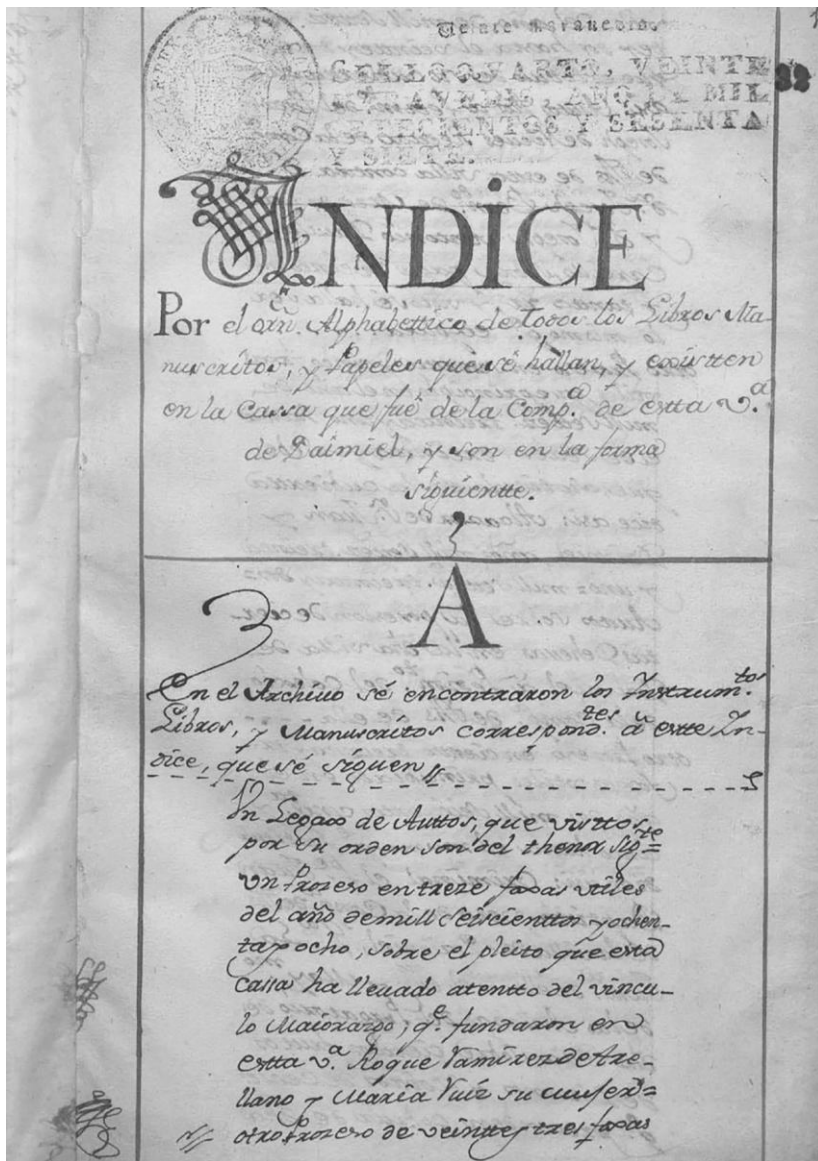 Veinte maravedis
SELLO QVARTO, VEINTE
MARAVEDIS, AÑO DE MIL
SETECIENTOS Y SESENTA
Y SIETE.
INDICE
Por el orn. Alphabettico de todos los Libros Ma-
nuscritos, y Papeles que sé hallan, y existten
en la Cassa que fué de la Comp.a de estta v.a
de Daimiel, y son en la forma
siguientte.
A
En el Archivo sé encontraron los Instrum.tos
Libros, y Manuscritos correspond.tes á estte In-
dice, que sé siguen
Un Legaxo de Auttos, que visttos
por su orden son del thenor sig.te=
un Prozeso en treze foxas utiles
del año de mill seiscienttos y ochen-
ta y ocho, sobre el pleito que esta
cassa ha llevado atentto del vincu-
lo Maiorazgo, q.e fundaron en
estta v.a Roque Ramirez de Are-
llano y Maria Ruiz su muger=
otro Prozeso de veintte y tres foxas